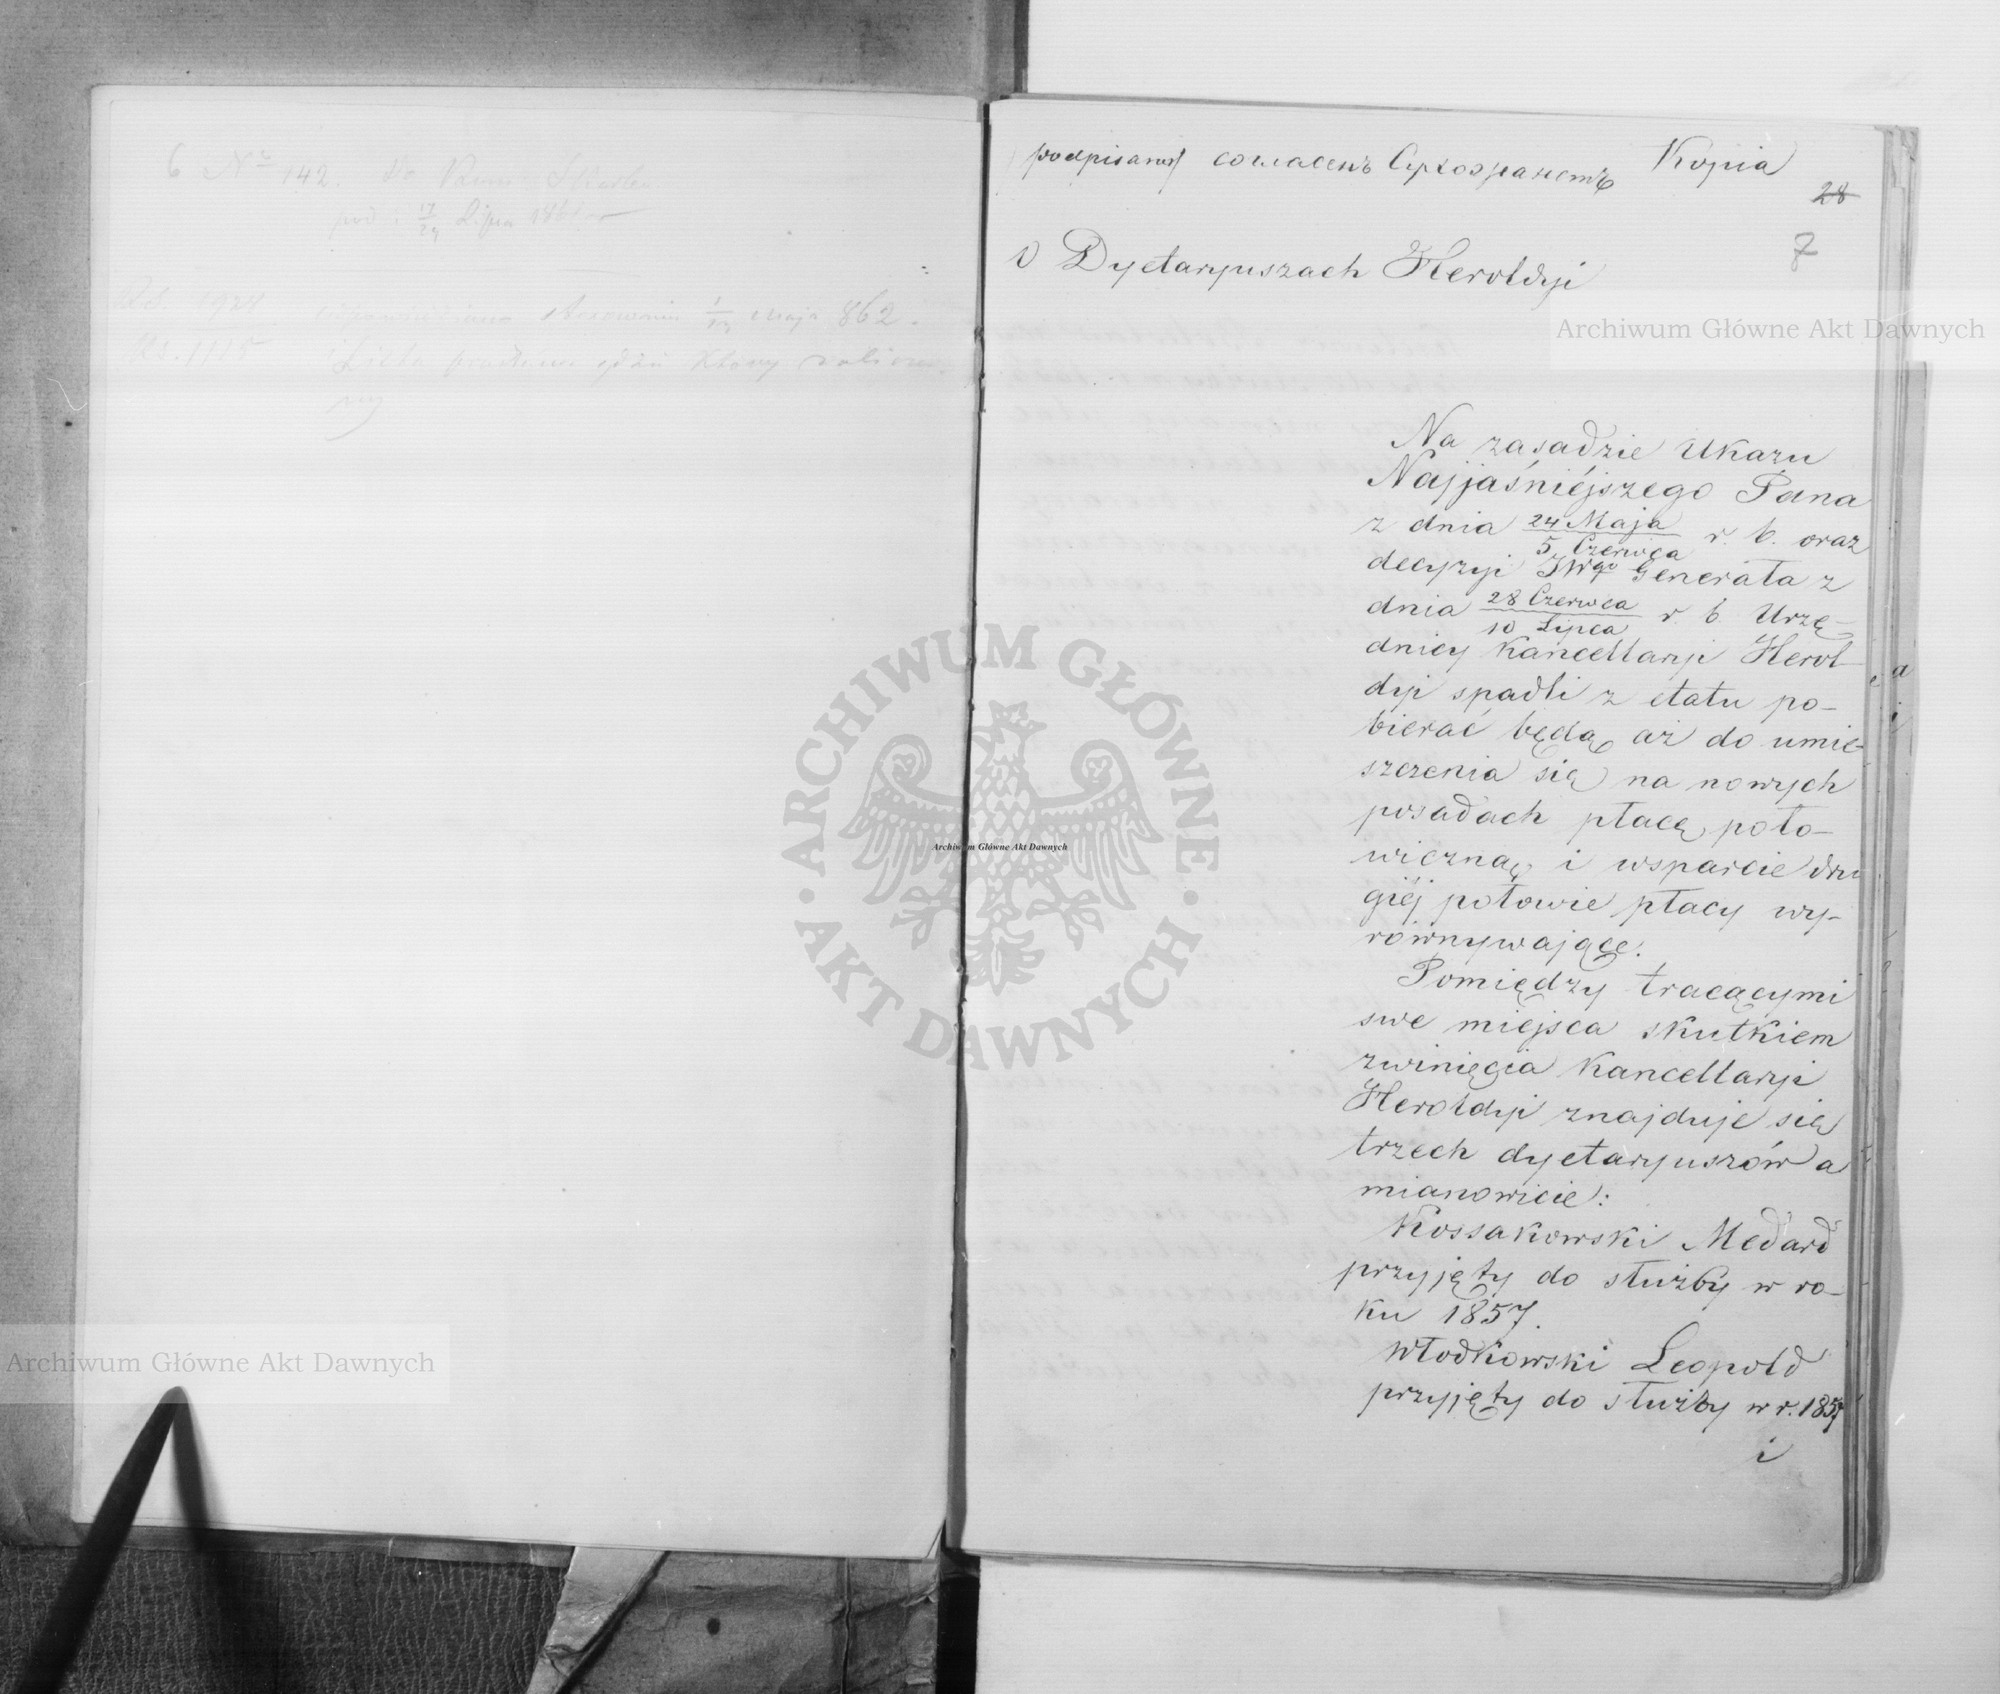 6 Nr 142.
pod: 17/29 Lipca 186
1924
1/13 Maja 862.
1115
podpisany Kopia
28
7
O Dyetaryuszach Heroldyi
Na zasadzie Ukazu
Najjaśniéjszego Pana
z dnia 24 Maja/5 Czerwca r. b. oraz
decyzyi JWgo Generała z
dnia 28 Czerwca/10 Lipca r. b. Urzę-
dnicy Kancellaryi Herol-
dyi spadli z etatu po-
bierać będą aż do umie-
szczenia się na nowych
posadach płacę poło-
wiczną i wsparcie dru
giéj połowie płacy wy-
równywające.
Pomiędzy tracącymi
swe miejsca skutkiem
zwinięcia Kancellaryi
Heroldyi znajduje się
trzech dyetaryuszów a
mianowicie:
Kossakowski Medard
przyjęty do służby w ro-
ku 1857.
Włodkowski Leopold
przyjęty do służby w r. 1857
i
Archiwum Główne Akt Dawnych
Archiwum Główne Akt Dawnych
ARCHIWUM GŁÓWNE AKT DAWNYCH
Archiwum Główne Akt Dawnych